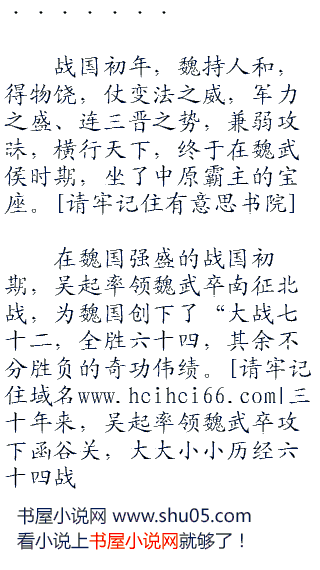 · · · · · · ·
战国初年，魏持人和，
得物饶，仗变法之威，军力
之盛、连三晋之势，兼弱攻
昧，横行天下，终于在魏武
侯时期，坐了中原霸主的宝
座。[请牢记住有意思书院]
在魏国强盛的战国初
期，吴起率领魏武卒南征北
战，为魏国创下了“大战七
十二，全胜六十四，其余不
分胜负的奇功伟绩。[请牢记
住域名www.hcihci66.com|三
十年来，吴起率领魏武卒攻
下函谷关，大大小小历经六
十四战
书屋小说网 www.shu05.com
看小说上书屋小说网就够了！